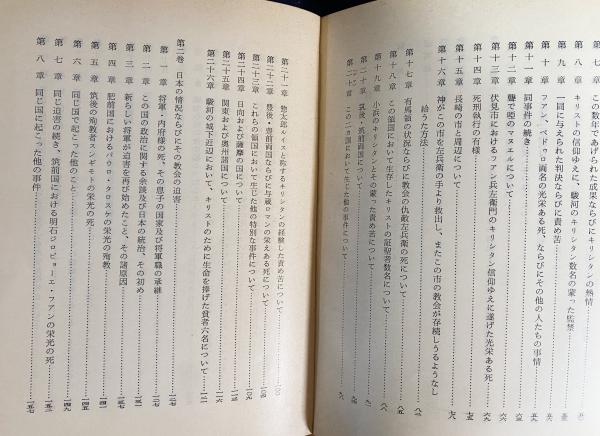 この数年であげられた成果ならびにキリシタンの熱情
第八章 キリストの信仰ゆえに、駿河のキリシタン数名の蒙った監禁
第九章 一同に与えられた判決ならびに責め苦
第十章 フアン、ペドゥロ両名の光栄ある死、ならびにその他の人たちの事情
第十一章 同事件の続き
第十二章 聾で啞のマヌエルについて
第十三章 伏見市におけるフアン兵左衛門のキリシタン信仰ゆえに遂げた光栄ある死
第十四章 死刑執行の有様
第十五章 長崎の市と周辺について
第十六章 神がこの市を左兵衛の手より救出し、またこの市の教会が存続しうるようなし給うた方法
第十七章 有馬領の状況ならびに教会の仇敵左兵衛の死について
第十八章 この領国において生じたキリストの証聖者数名について
第十九章 小浜のキリシタンとその蒙った責め苦について
第二十章 筑後、筑前両国について
このニカ国において生じた他の事件について
第二十一章 惣太郎ルイスと称するキリシタンの経験した責め苦について 一〇〇
第二十二章 豊後、豊前両国ならびに与蔵ロマンの栄えある死について
第二十三章 これらの領国において生じた他の特別な事件について
第二十四章 日向および薩摩の国について
第二十五章 関東および奥州諸国について
第二十六章 駿河の城下近辺において、キリストのために生命を捧げた貧者六名について
第二巻 日本の情況ならびにその教会の迫害
第一章 将軍・内府様の死、その息子の国家及び将軍職の承継
第二章 この国の政治に関する余談及び日本の統治、その初め
第三章 新らしい将軍が迫害を再び始めたこと、その諸原因
第四章 肥前国におけるパウロ・タロスケの栄光の殉教
第五章 筑後の殉教者スギモトの栄光の死
第六章 同じ国で起こった他のこと
第七章 同じ迫害の続き、筑前国における明石ジロビョーエ・フアンの栄光の死
第八章 同じ国に起こった他の事件